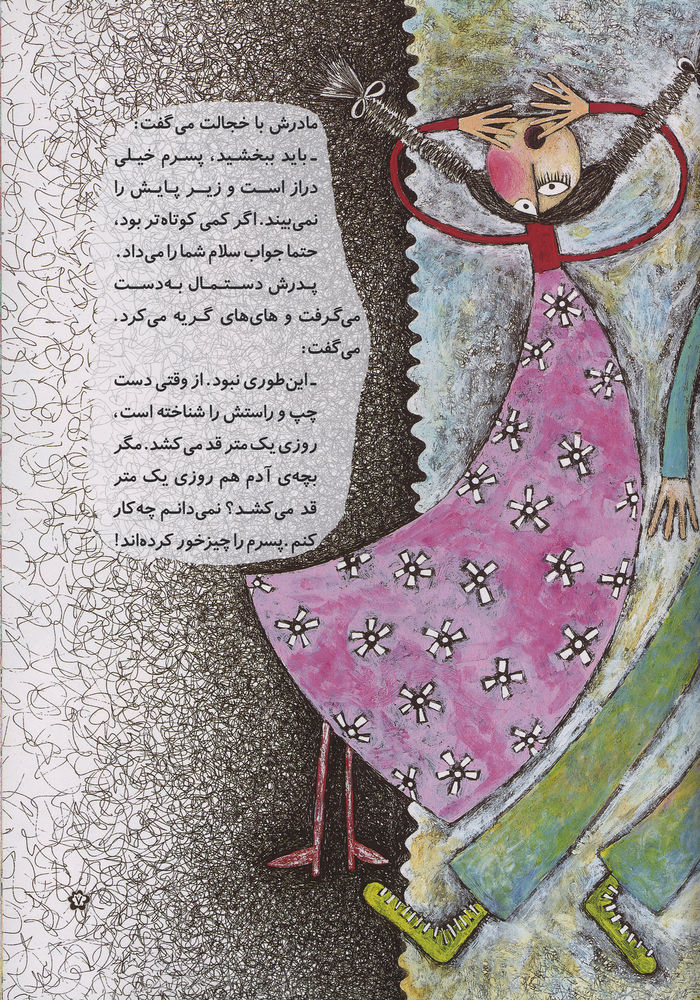 مادرش با خجالت می‌گفت:
ـ باید ببخشید، پسرم خیلی
دراز است و زیر پایش را
نمی‌بیند. اگر کمی کوتاه‌تر بود،
حتما جواب سلام شما را می‌داد.
پدرش دستمال به‌دست
می‌گرفت و های‌های گریه می‌کرد.
می‌گفت:
ـ این‌طوری نبود. از وقتی دست
چپ و راستش را شناخته است،
روزی یک متر قد می‌کشد. مگر
بچه‌ی آدم هم روزی یک متر
قد می‌کشد؟ نمی‌دانم چه‌کار
کنم. پسرم را چیزخور کرده‌اند!
۷